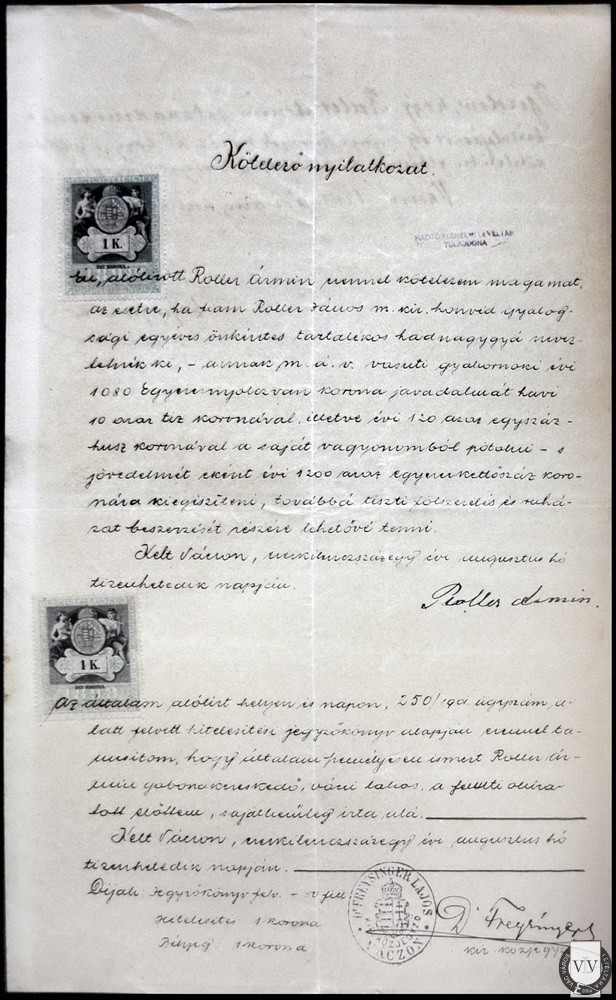 Kötelező nyilatkozat.
HADTÖRTÉNELMI LEVÉLTÁR
TULAJDONA
1 K.
EGY KORONA
Én, alólirott Roller Ármin ezennel kötelezem magamat,
az esetre, ha fiam Roller János m. kir. honvéd gyalog-
sági egyéves önkéntes tartalékos hadnagygyá nevez-
tetnék ki, – annak m. á. v. vasuti gyakornoki évi
1080 Egyezernyolczvan korona javadalmát havi
10 azaz tiz koronával, illetve évi 120 azaz egyszáz-
husz koronával a saját vagyonomból pótolni – s
jövedelmét eként évi 1200 azaz egyezerkettőszáz koro-
nára kiegésziteni, továbbá tiszti fölszerelés és ruhá-
zat beszerzését részére lehetővé tenni.
Kelt Váczon, ezerkilenczszázegy évi augusztus hó
tizenhetedik napján.
Roller Ármin.
1 K.
EGY KORONA
Az általam alólirt helyen és napon, 250/1901 ügyszám a-
latt felvett hitelesitési jegyzőkönyv alapján ezennel ta-
nusitom, hogy általam személyesen ismert Roller Ár-
min gabonakereskedő, váczi lakos, a fentti okira-
tott előttem, sajátkezüleg irta alá.
Kelt Váczon, ezerkilenczszázegy évi augusztus hó
tizenhetedik napján.
Dijak: Jegyzőkönyv felv. – 50 fill
Hitelesités 1 korona
Bélyeg: 1 korona
Dr FREYSINGER LAJOS
KIR. KÖZJEGYZŐ
VÁCZON
Dr Freysinger
kir. közjegyző
VV